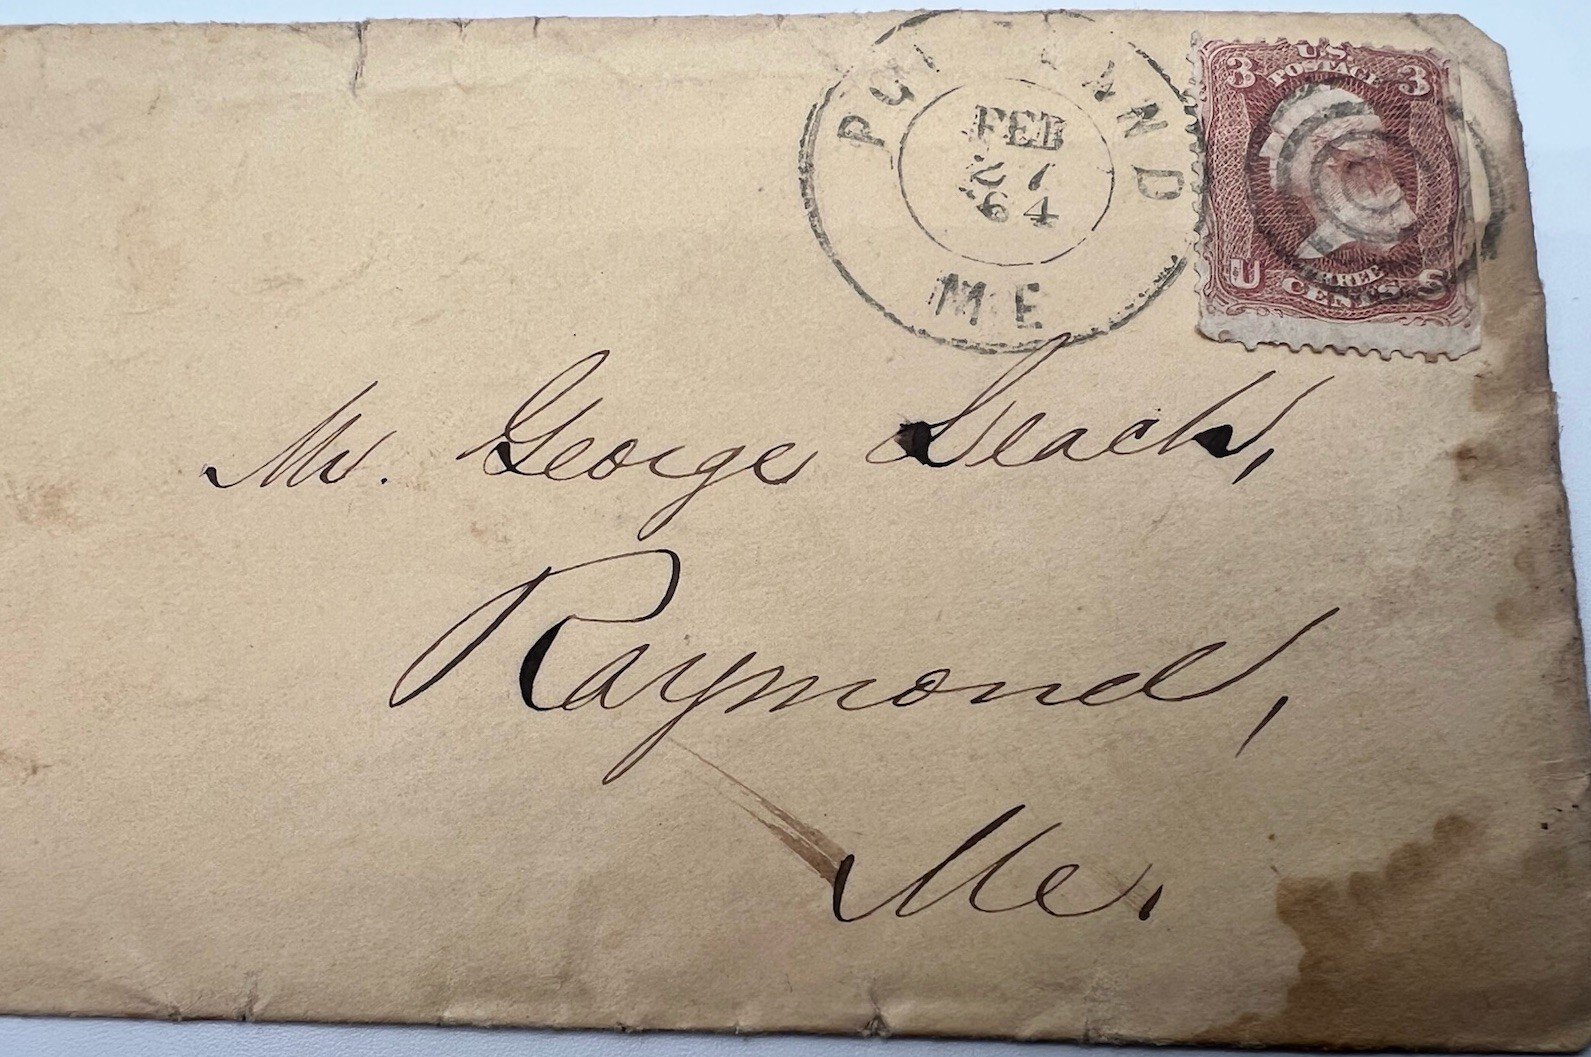 PORTLAND
FEB
27
64
ME
U.S.
POSTAGE
3 3
U S
THREE
CENTS
Mr. George Leach,
Raymond,
Me.